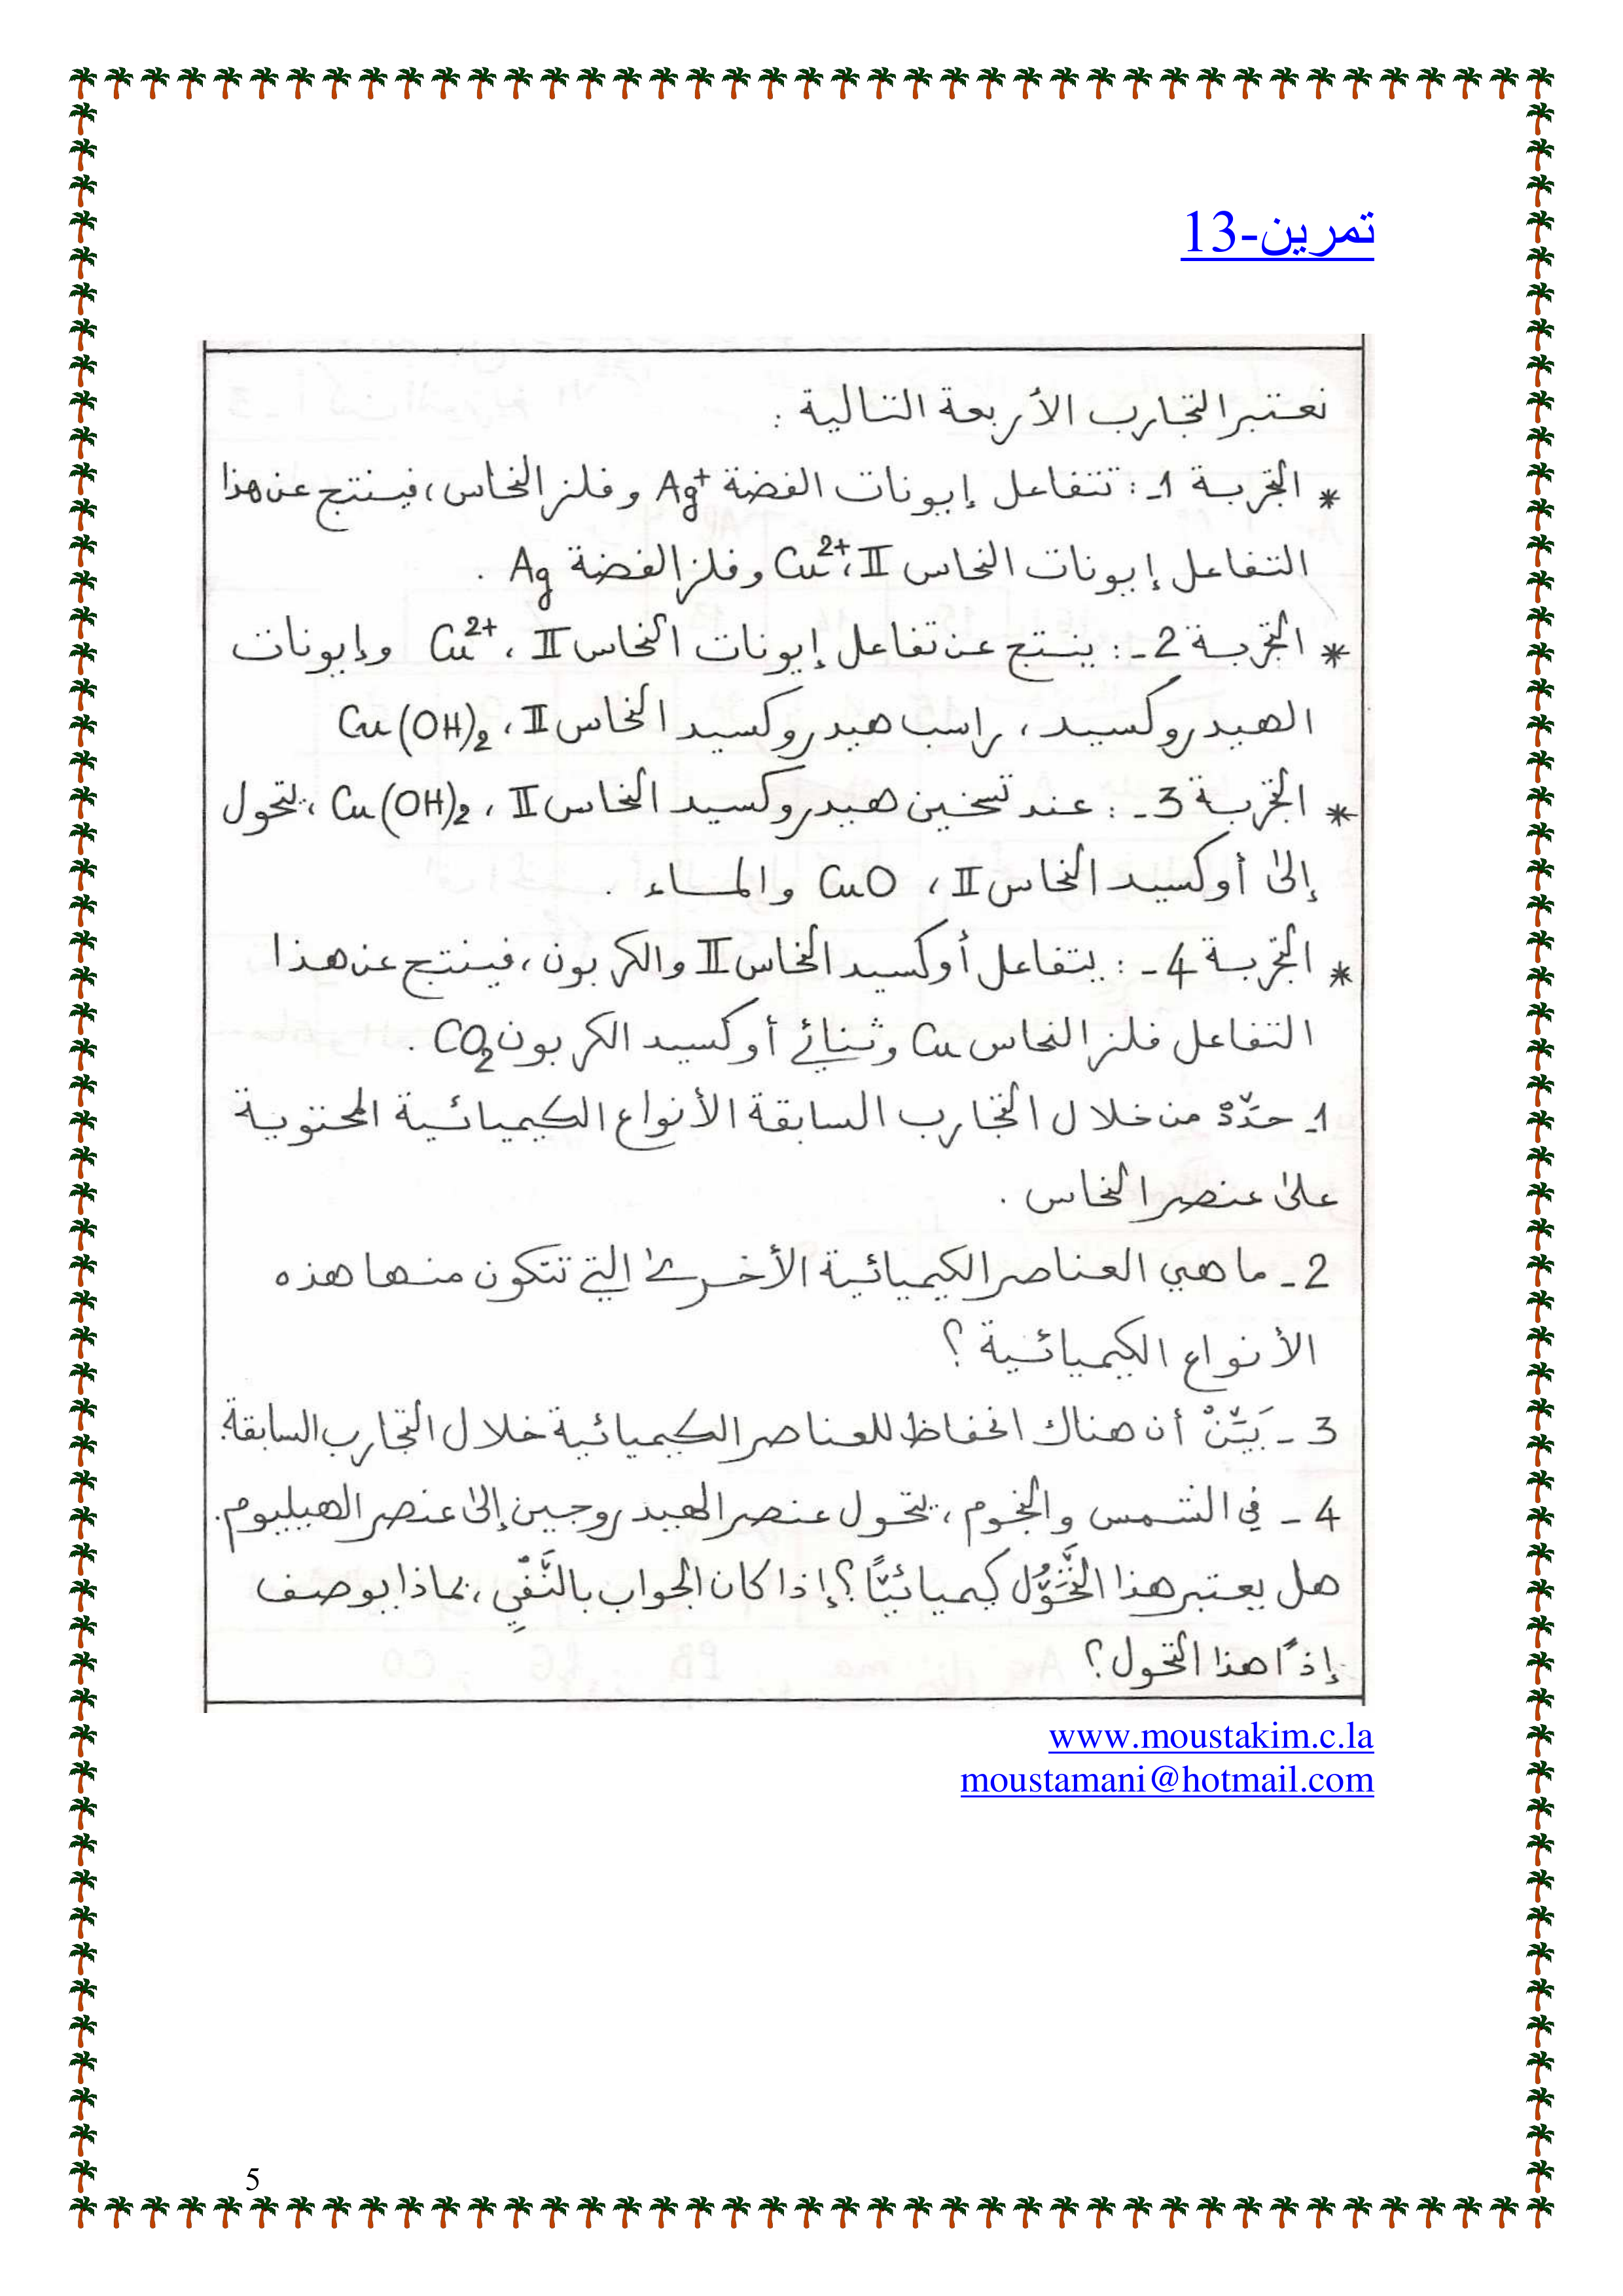 تمرين-13
نعتبر التجارب الأربعة التالية :
* التجربة 1- : تتفاعل إيونات الفضة Ag⁺ وفلز النحاس، فينتج عن هذا
التفاعل إيونات النحاس II، Cu²⁺ وفلز الفضة Ag .
* التجربة 2- : ينتج عن تفاعل إيونات النحاس II، Cu²⁺ وإيونات
الهيدروكسيد ، راسب هيدروكسيد النحاس II، Cu(OH)₂
* التجربة 3- : عند تسخين هيدروكسيد النحاس II، Cu(OH)₂، يتحول
إلى أوكسيد النحاس II، CuO والماء .
* التجربة 4- : يتفاعل أوكسيد النحاس II والكربون، فينتج عن هذا
التفاعل فلز النحاس Cu وثنائي أوكسيد الكربون CO₂ .
1- حدّدْ من خلال التجارب السابقة الأنواع الكيميائية المحتوية
على عنصر النحاس .
2- ما هي العناصر الكيميائية الأخرى التي تتكون منها هذه
الأنواع الكيميائية ؟
3- بَيِّنْ أن هناك انحفاظ للعناصر الكيميائية خلال التجارب السابقة.
4- في الشمس والنجوم ، يتحول عنصر الهيدروجين إلى عنصر الهيليوم.
هل يعتبر هذا التَّحَوُّل كيميائيًّا ؟ إذا كان الجواب بالنَّفْيِ ، بماذا يوصف
إذًا هذا التحول ؟
www.moustakim.c.la
moustamani@hotmail.com
5